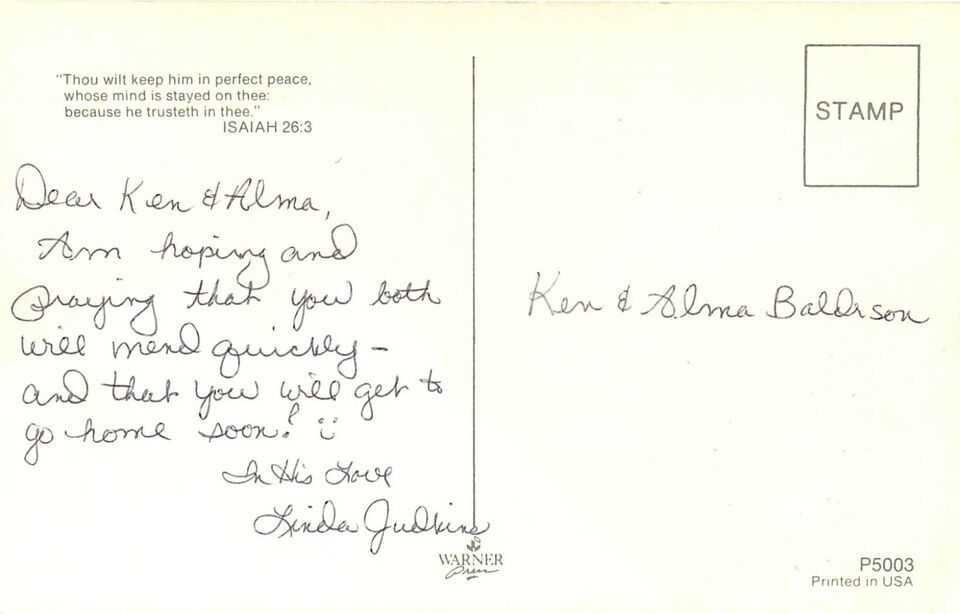 "Thou wilt keep him in perfect peace,
whose mind is stayed on thee:
because he trusteth in thee."
ISAIAH 26:3
STAMP
Dear Ken & Alma,
Am hoping and
praying that you both
will mend quickly –
and that you will get to
go home soon!
In His Love
Linda Judkins
Ken & Alma Baldison
WARNER
Press
P5003
Printed in USA